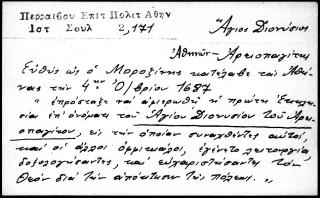 Περραιβου Επιτ Πολιτ Αθην
Ιστ Σουλ 2,171
Ἅγιος Διονύσιος
Ἀθηνῶν - Ἀρειοπαγίτης
Εὐθὺς ὡς ὁ Μοροζίνης κατέλαβε τὰς Ἀθή-
νας τὴν 4ην 8/βρίου 1687
" ἐπρόσταξε νὰ ἀφιερωθῇ ἡ πρώτη Ἐκκλη-
σία ἐπ' ὀνόματι τοῦ Ἁγίου Διονυσίου τοῦ Ἀρει-
οπαγίτου, εἰς τὴν ὁποίαν συναχθέντες αὐτοί,
καὶ οἱ ἄλλοι ὀφφικιάλοι, ἐγένετο λειτουργία
δοξολογήσαντες, καὶ εὐχαριστήσαντες τὸν
Θεὸν διὰ τὴν ἀπόκτησιν τῆς πόλεως. "